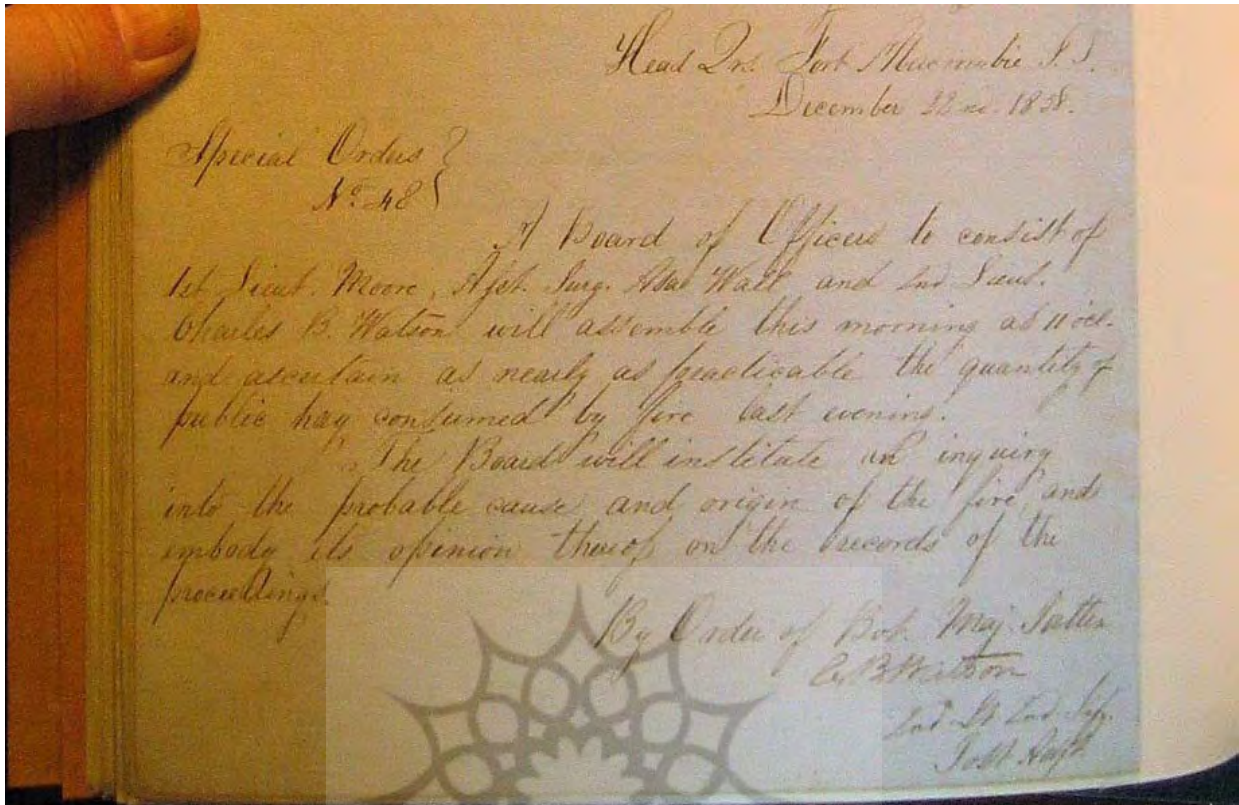 Head Qrs. Fort Abercrombie D.T.
December 22nd. 1858.
Special Orders
No. 48
A Board of Officers to consist of
1st Lieut. Moore, Asst. Surg. Asa Wall and 2nd Lieut.
Charles B. Watson will assemble this morning at 11 ocl.
and ascertain as nearly as practicable the quantity of
public hay consumed by fire last evening.
The Board will institute an inquiry
into the probable cause and origin of the fire, and
embody its opinion thereof on the records of the
proceedings.
By Order of Bvt. Maj. Patten
C. B. Watson
2nd Lt. 2nd Infy.
Post Adjt.